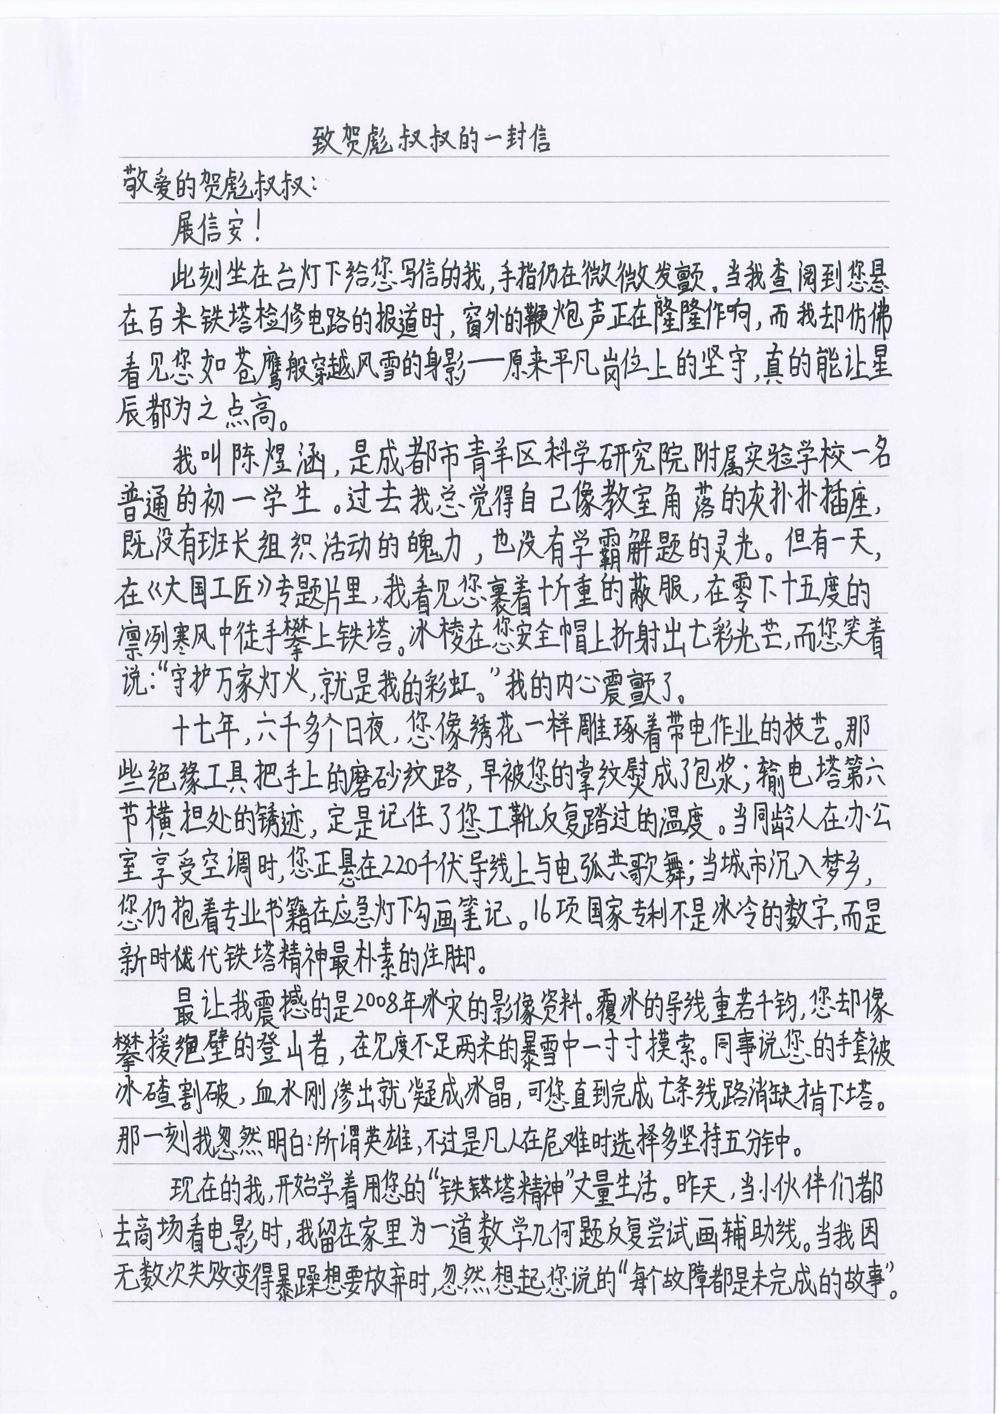 致贺彪叔叔的一封信
敬爱的贺彪叔叔:
展信安!
此刻坐在台灯下给您写信的我,手指仍在微微发颤。当我查阅到您悬
在百米铁塔检修电路的报道时,窗外的鞭炮声正在隆隆作响,而我却仿佛
看见您如苍鹰般穿越风雪的身影——原来平凡岗位上的坚守,真的能让星
辰都为之点高。
我叫陈煜涵,是成都市青羊区科学研究院附属实验学校一名
普通的初一学生。过去我总觉得自己像教室角落的灰扑扑插座,
既没有班长组织活动的魄力,也没有学霸解题的灵光。但有一天,
在《大国工匠》专题片里,我看见您裹着十斤重的蔽服,在零下十五度的
凛冽寒风中徒手攀上铁塔。冰棱在您安全帽上折射出七彩光芒,而您笑着
说:“守护万家灯火,就是我的彩虹。”我的内心震颤了。
十七年,六千多个日夜,您像绣花一样雕琢着带电作业的技艺。那
些绝缘工具把手上的磨砂纹路,早被您的掌纹熨成了包浆;输电塔第六
节横担处的锈迹,定是记住了您工靴反复踏过的温度。当同龄人在办公
室享受空调时,您正悬在220千伏导线上与电弧共歌舞;当城市沉入梦乡,
您仍抱着专业书籍在应急灯下勾画笔记。16项国家专利不是冰冷的数字,而是
新时代铁塔精神最朴素的注脚。
最让我震撼的是2008年冰灾的影像资料。覆冰的导线重若千钧,您却像
攀援绝壁的登山者,在能见度不足两米的暴雪中一寸寸摸索。同事说您的手套被
冰碴割破,血水刚渗出就凝成冰晶,可您直到完成七条线路消缺才肯下塔。
那一刻我忽然明白:所谓英雄,不过是凡人在危难时选择多坚持五分钟。
现在的我,开始学着用您的“铁塔精神”丈量生活。昨天,当小伙伴们都
去商场看电影时,我留在家里为一道数学几何题反复尝试画辅助线。当我因
无数次失败变得暴躁想要放弃时,忽然想起您说的“每个故障都是未完成的故事”。